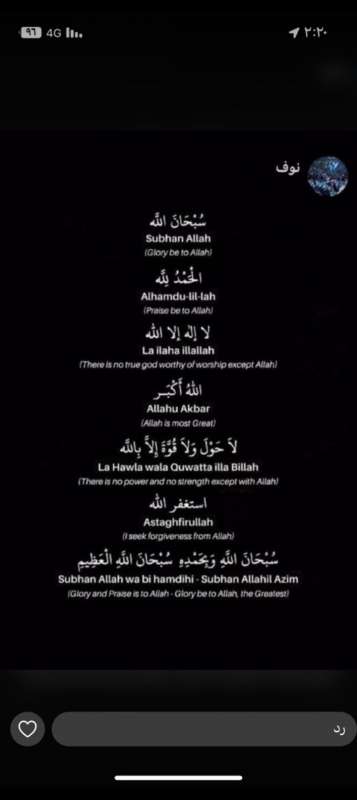 ٩٦ 4G ٢:٢٠
نوف
سُبْحَانَ اللَّه
Subhan Allah
(Glory be to Allah)
الْحَمْدُ لِلَّه
Alhamdu-lil-lah
(Praise be to Allah)
لا إِلٰه إلا الله
La ilaha illallah
(There is no true god worthy of worship except Allah)
اللهُ أَكْبَـر
Allahu Akbar
(Allah is most Great)
لاَ حَوْلَ وَلاَ قُوَّةَ إِلاَّ بِاللَّه
La Hawla wala Quwatta illa Billah
(There is no power and no strength except with Allah)
استغفر الله
Astaghfirullah
(I seek forgiveness from Allah)
سُبْحَانَ اللَّهِ وَبِحَمْدِهِ سُبْحَانَ اللَّهِ الْعَظِيمِ
Subhan Allah wa bi hamdihi - Subhan Allahil Azim
(Glory and Praise is to Allah - Glory be to Allah, the Greatest)
رد